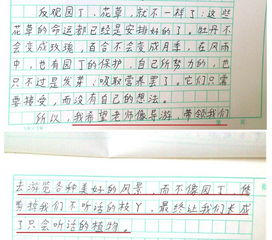 反观园丁、花草，就不一样了，这些
花草的命运都已经是安排好的了。牡丹不
会变成玫瑰，百合不会变成月季，在风雨
中，也有园丁的保护，自己所努力的，也
只不过是发芽，吸取营养罢了。它们只需
要接受，而没有自己的想法。
所以，我希望老师像导游，带领我们
去游览各种美好的风景，而不像园丁，修
剪掉我们不听话的枝丫，最终让我们长成
了只会听话的植物。